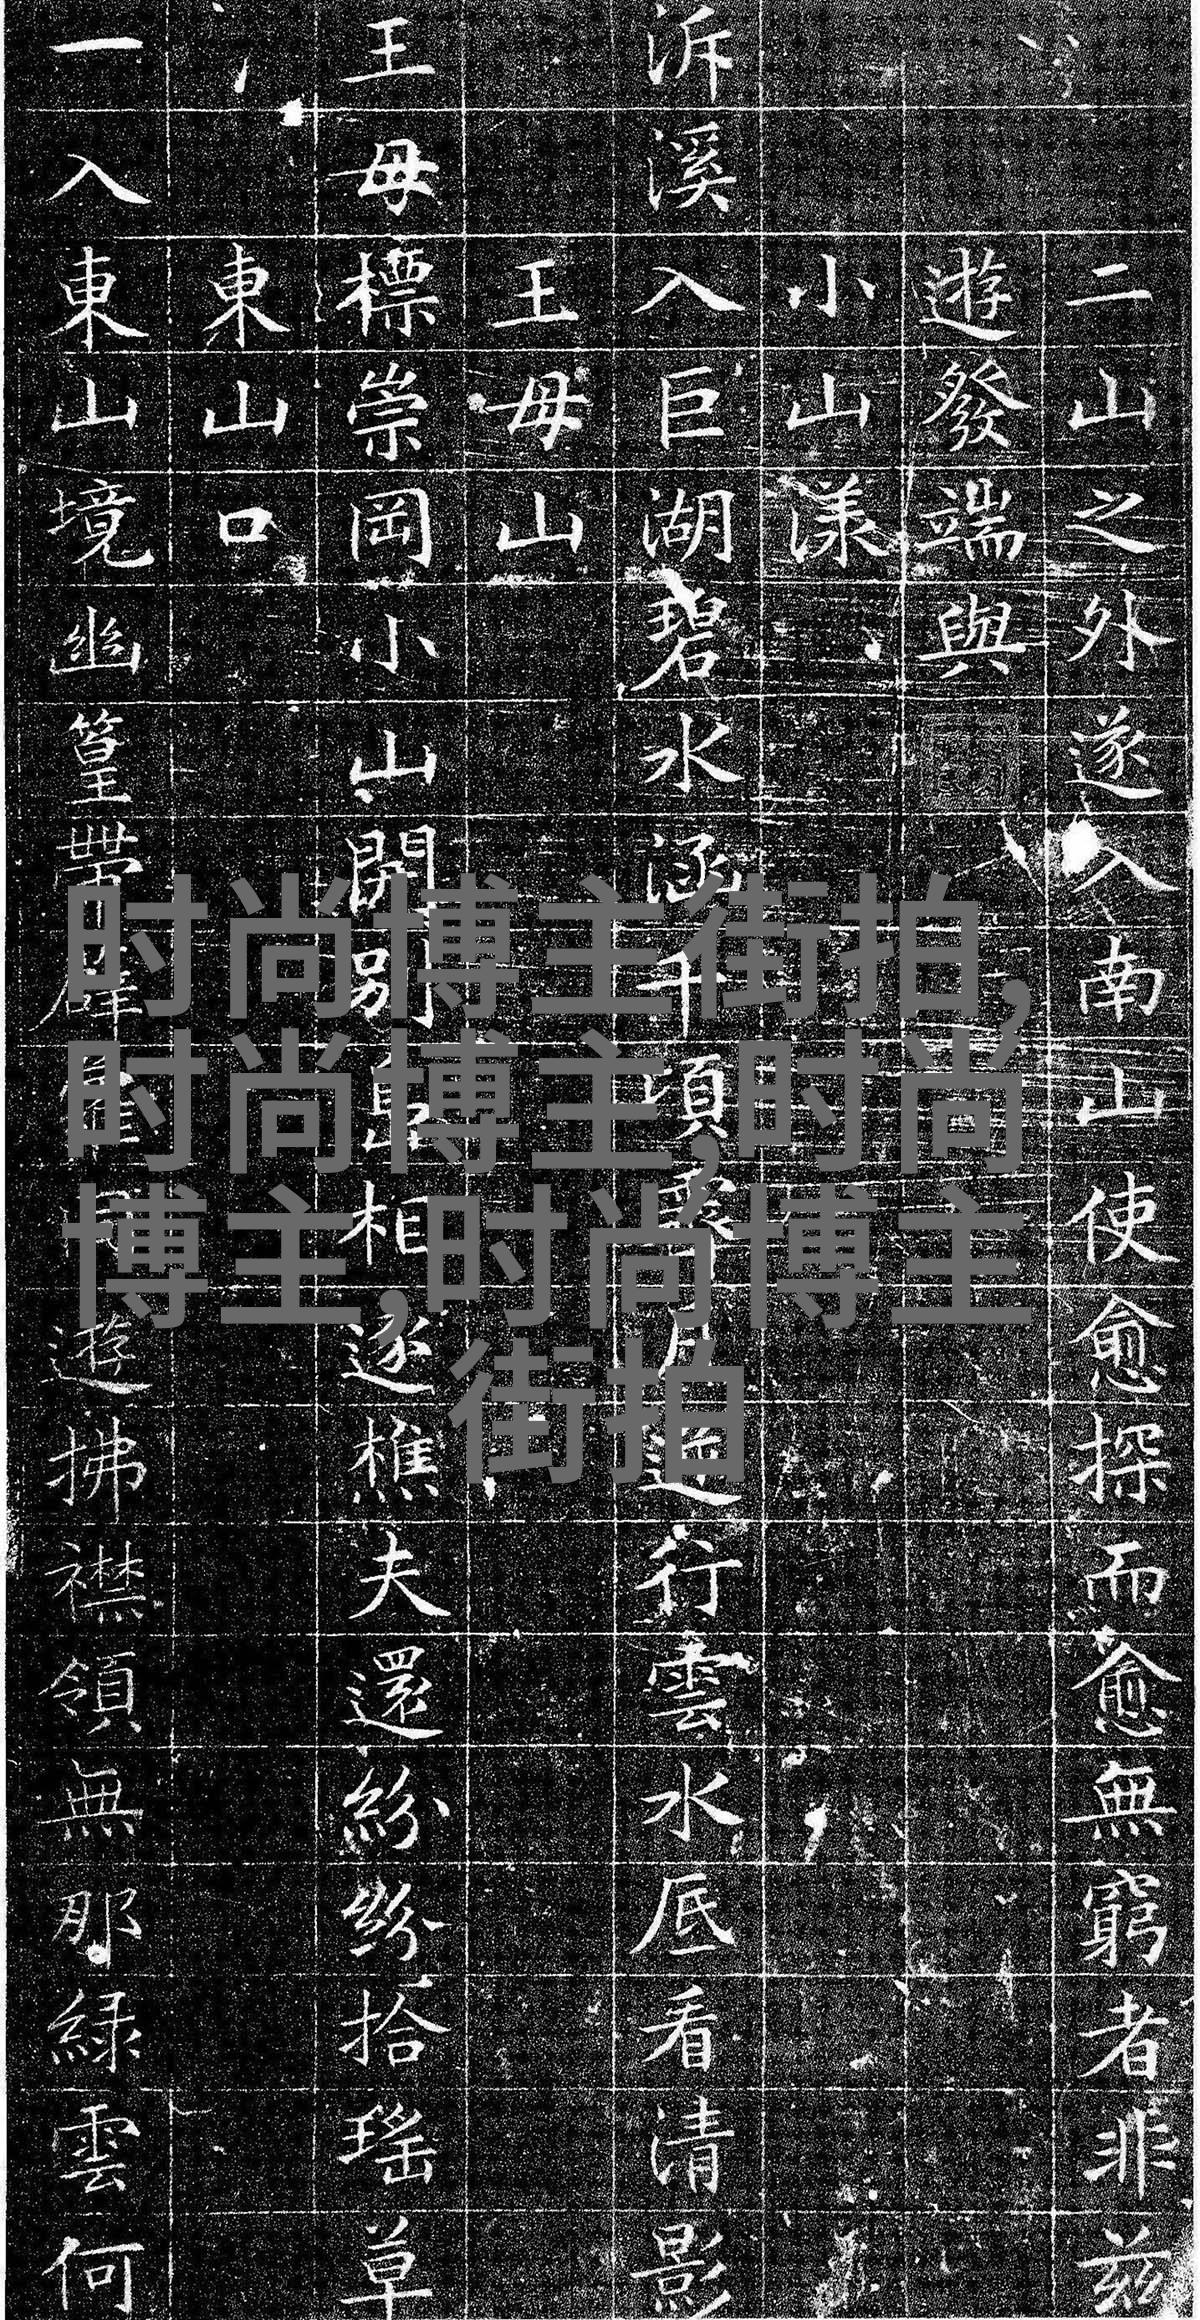 二山之外遂入南山使愈探而愈無窮者非茲
遊發端與
小山漾
泝溪入巨湖碧水涵千頃月逆行雲水底看清影
王母山
王母標崇岡小山開別島相逐樵夫還紛紛拾瑤草
東山口
一入東山境幽篁帶薜遊拂襟領無那綠雲何
时尚博主街拍,
时尚博主,时尚
博主,时尚博主
街拍